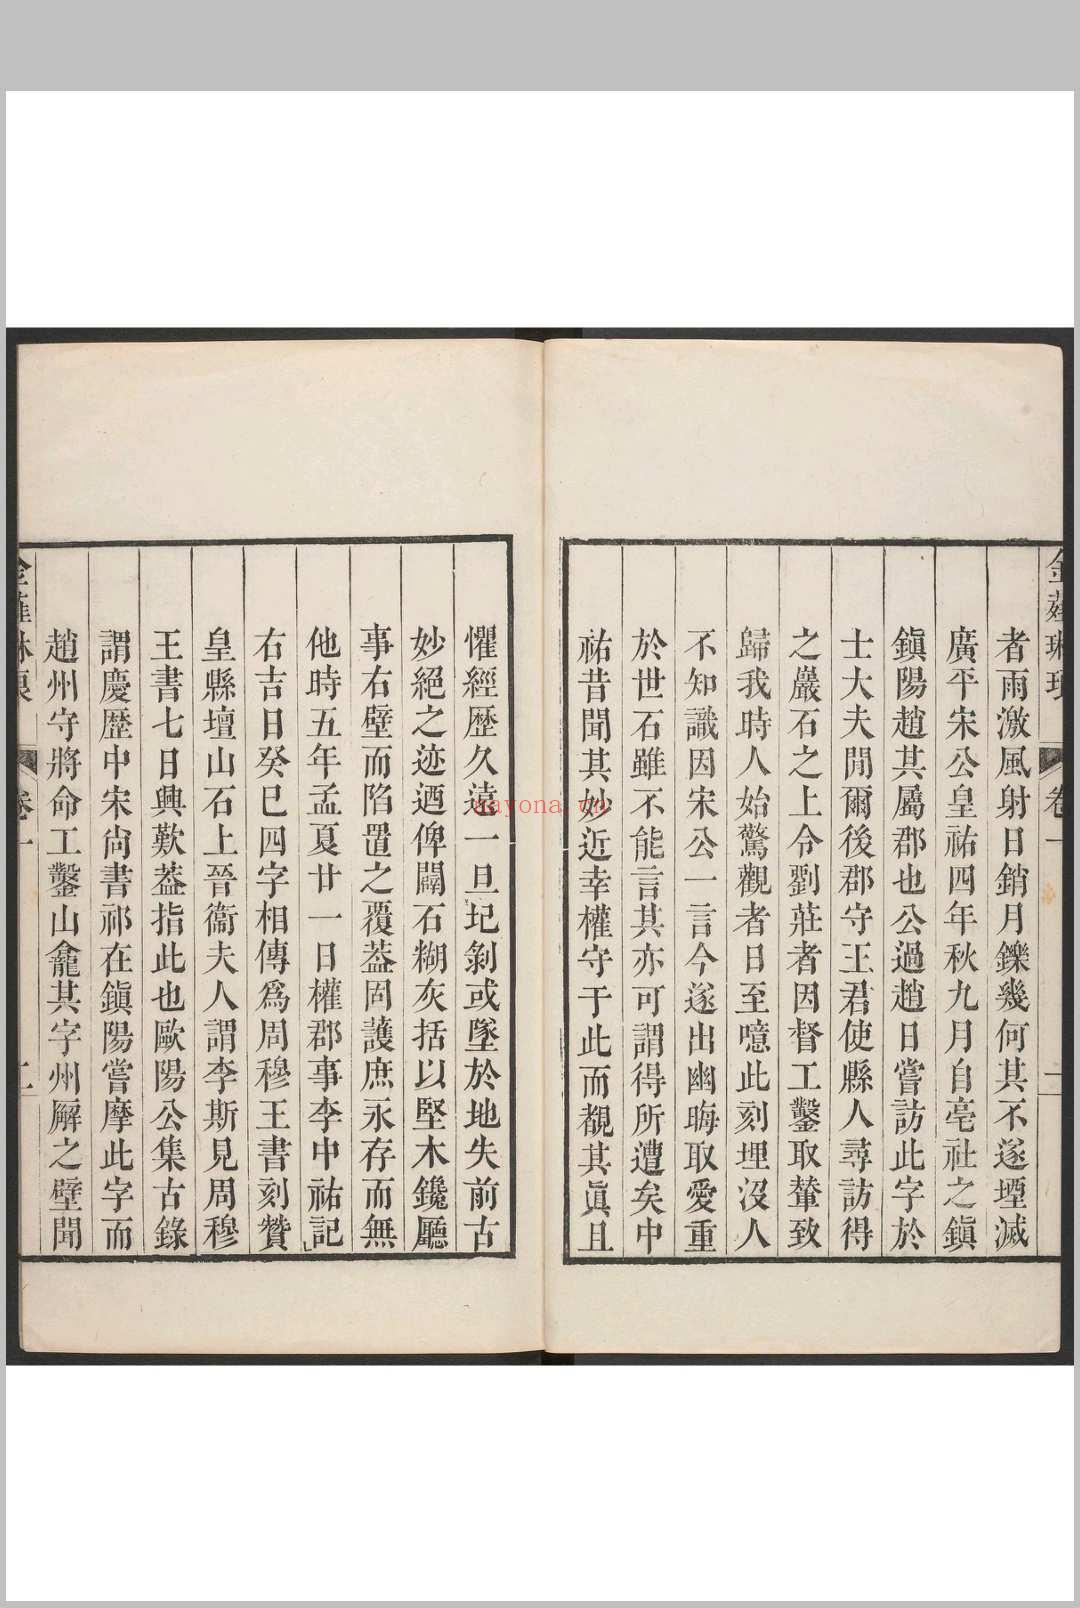 金薤琳琅
卷一
一
者雨激風射日銷月鑠幾何其不遂堙滅
廣平宋公皇祐四年秋九月自亳社之鎭
鎭陽趙其屬郡也公過趙日嘗訪此字於
士大夫閒爾後郡守王君使縣人尋訪得
之巖石之上令劉莊者因督工鑿取輦致
歸我時人始驚觀者日至噫此刻埋沒人
不知識因宋公一言今遂出幽晦取愛重
於世石雖不能言其亦可謂得所遭矣中
祐昔聞其妙近幸權守于此而覩其眞且
懼經歷久遠一旦圮剝或墜於地失前古
妙絕之迹迺俾闢石糊灰括以堅木鑱廳
事右壁而陷置之覆葢固護庶永存而無
他時五年孟夏廿一日權郡事李中祐記
右吉日癸巳四字相傳爲周穆王書刻贊
皇縣壇山石上晉衞夫人謂李斯見周穆
王書七日興歎葢指此也歐陽公集古錄
謂慶歷中宋尙書祁在鎭陽嘗摩此字而
趙州守將命工鑿山龕其字州廨之壁聞
金薤琳琅
卷一
二
aayona.cn